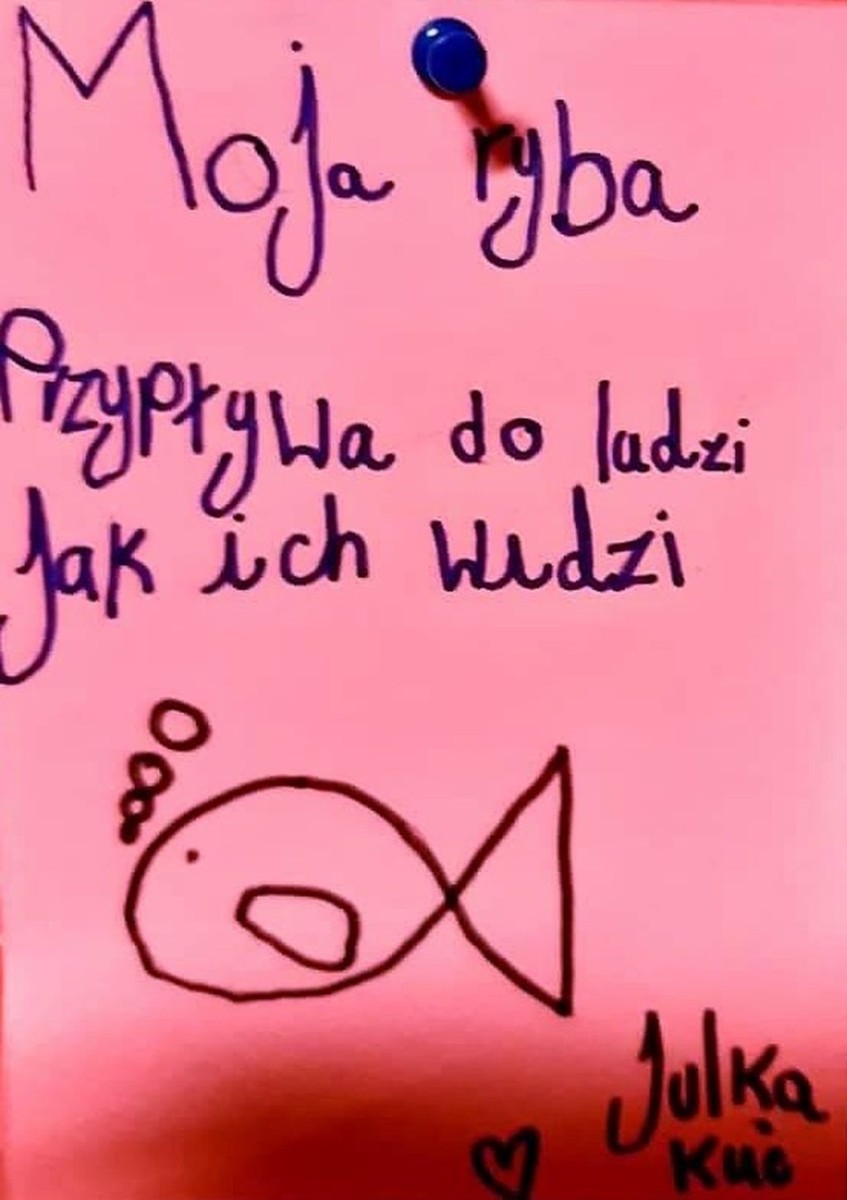 Moja ryba
Przypływa do ludzi
Jak ich widzi
Julka
Kuć